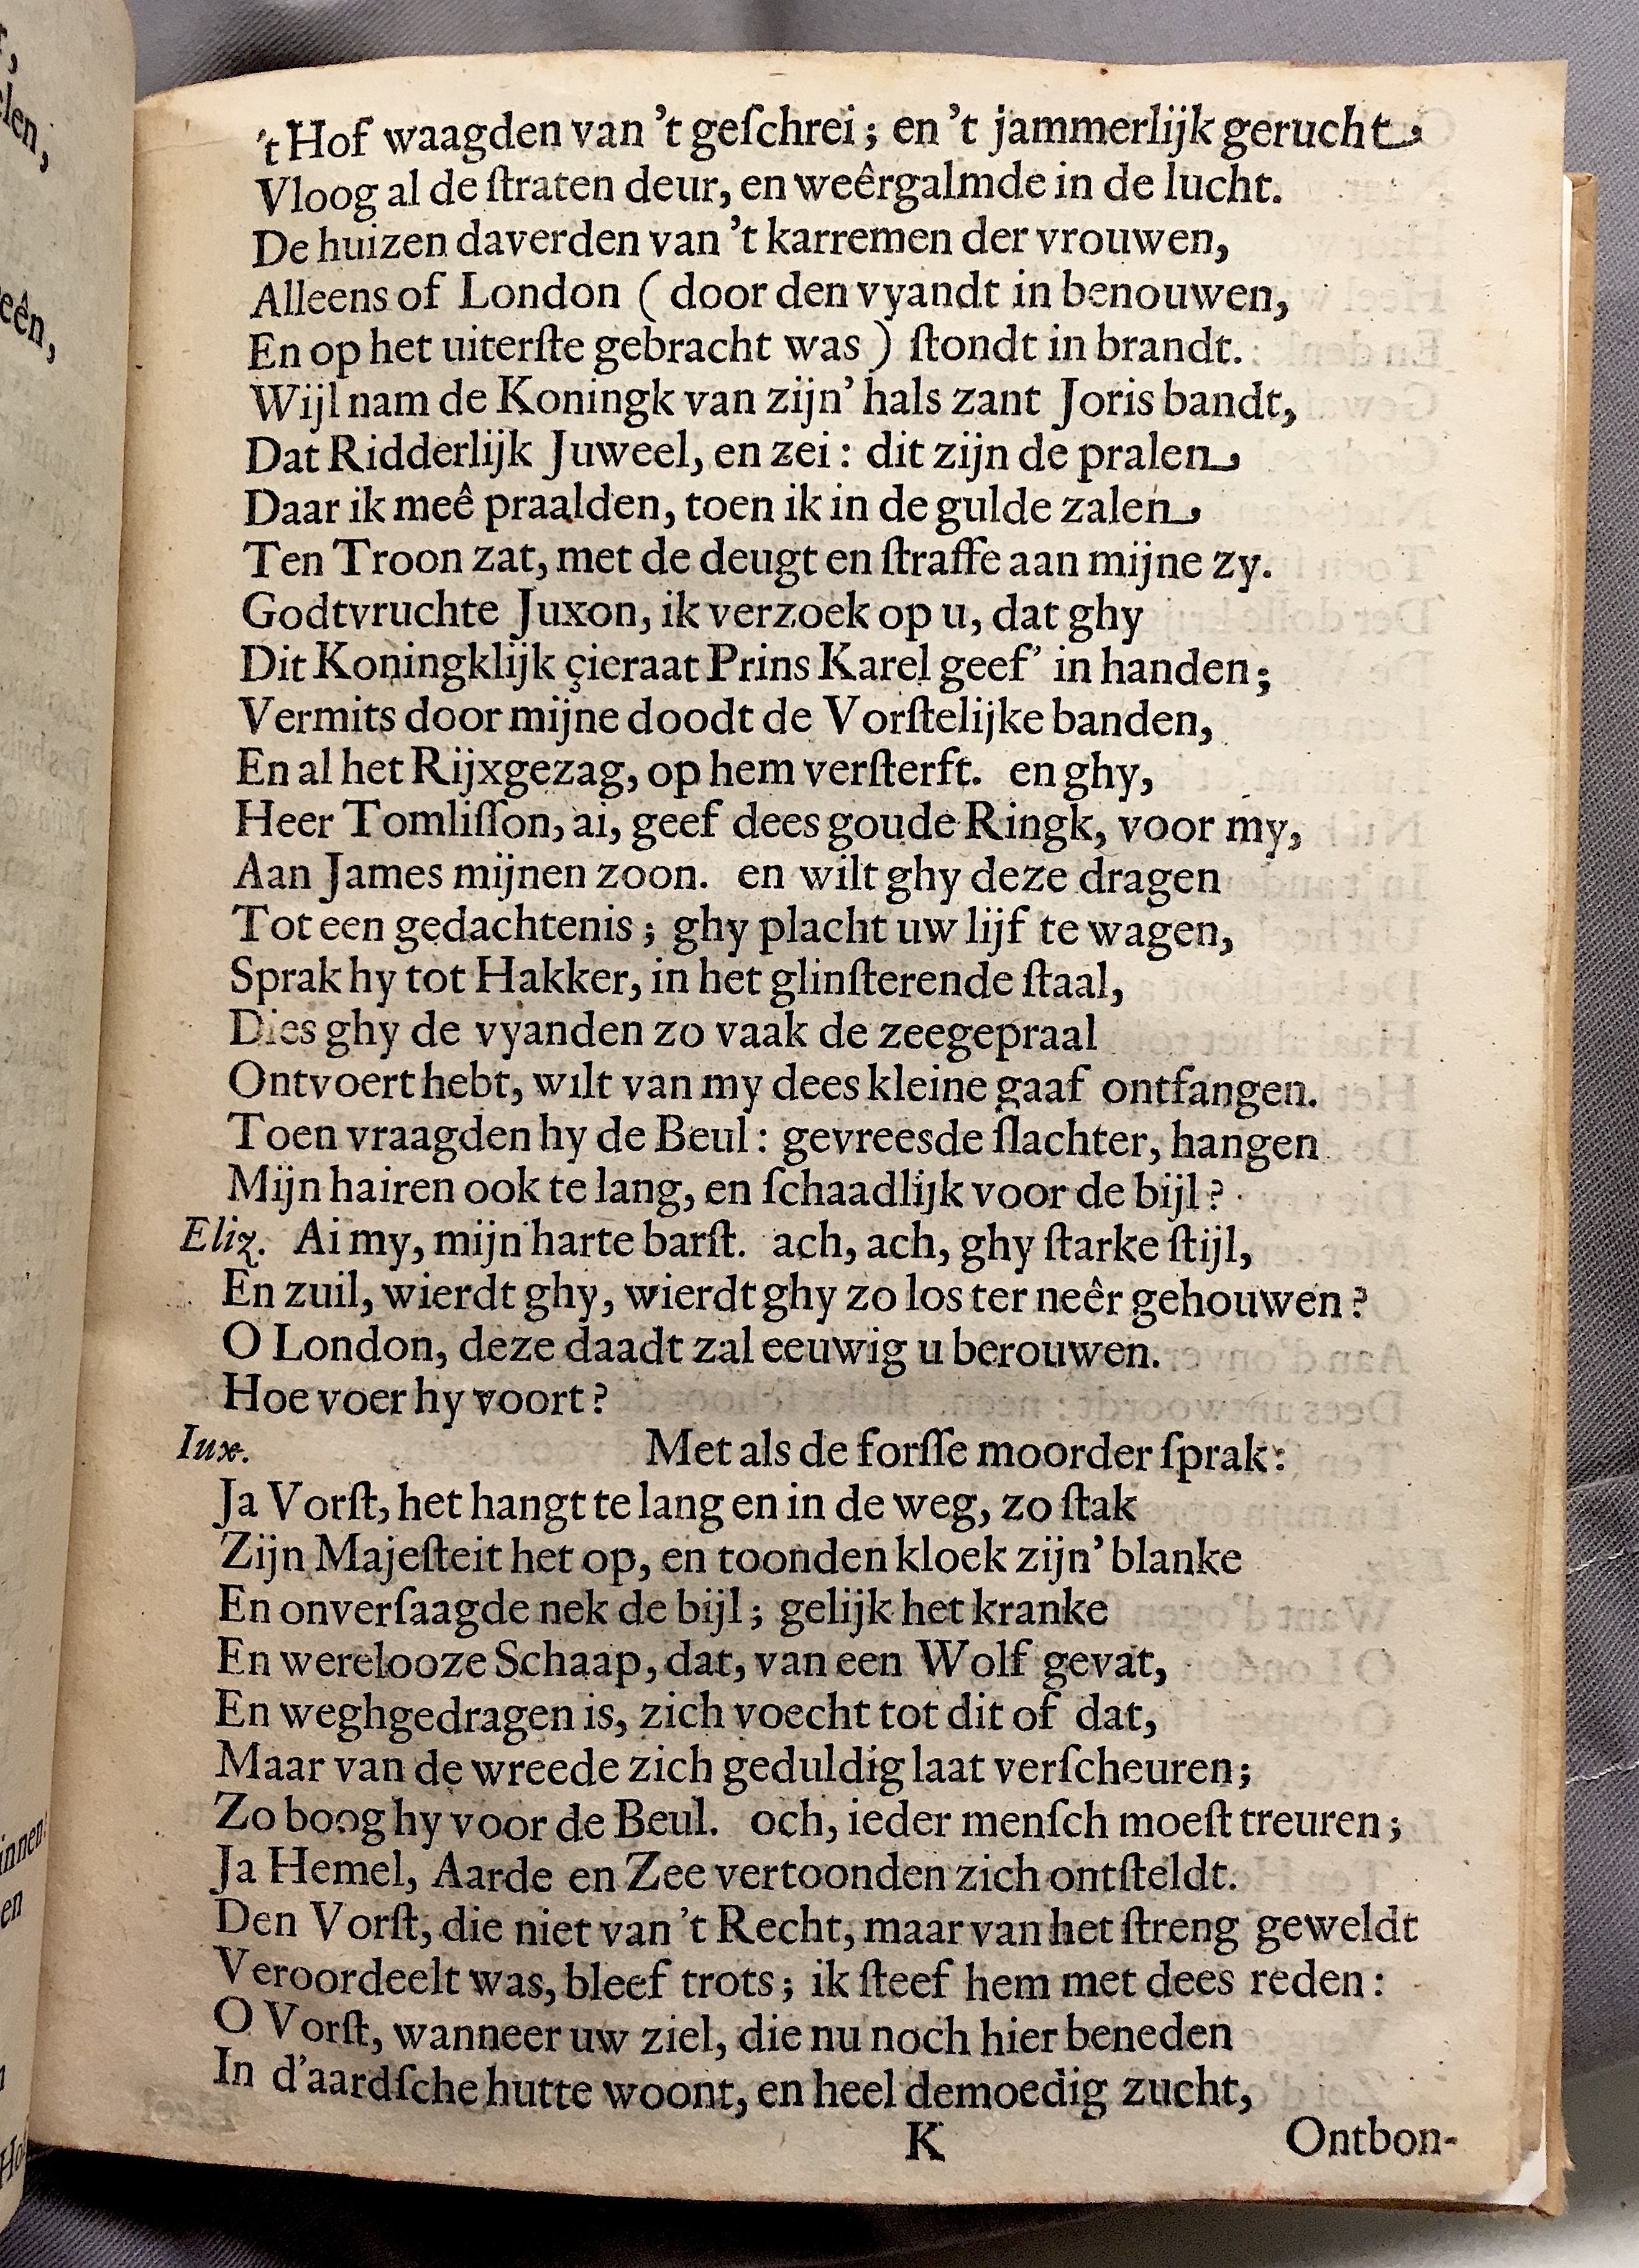 't Hof waagden van 't geſchrei; en 't jammerlijk gerucht
Vloog al de ſtraten deur, en weêrgalmde in de lucht.
De huizen daverden van 't karremen der vrouwen,
Alleens of London ( door den vyandt in benouwen,
En op het uiterſte gebracht was ) ſtondt in brandt.
Wijl nam de Koningk van zijn' hals zant Joris bandt,
Dat Ridderlijk Juweel, en zei: dit zijn de pralen
Daar ik meê praalden, toen ik in de gulde zalen
Ten Troon zat, met de deugt en ſtraffe aan mijne zy.
Godtvruchte Juxon, ik verzoek op u, dat ghy
Dit Koningklijk çieraat Prins Karel geef' in handen;
Vermits door mijne doodt de Vorſtelijke banden,
En al het Rijxgezag, op hem verſterft. en ghy,
Heer Tomliſſon, ai, geef dees goude Ringk, voor my,
Aan James mijnen zoon. en wilt ghy deze dragen
Tot een gedachtenis; ghy placht uw lijf te wagen,
Sprak hy tot Hakker, in het glinſterende ſtaal,
Dies ghy de vyanden zo vaak de zeegepraal
Ontvoert hebt, wilt van my dees kleine gaaf ontfangen.
Toen vraagden hy de Beul: gevreesde ſlachter, hangen
Mijn hairen ook te lang, en ſchaadlijk voor de bijl?
Eliz. Ai my, mijn harte barſt. ach, ach, ghy ſtarke ſtijl,
En zuil, wierdt ghy, wierdt ghy zo los ter neêr gehouwen?
O London, deze daadt zal eeuwig u berouwen.
Hoe voer hy voort?
Iux. Met als de forſſe moorder ſprak:
Ja Vorſt, het hangt te lang en in de weg, zo ſtak
Zijn Majeſteit het op, en toonden kloek zijn' blanke
En onverſaagde nek de bijl; gelijk het kranke
En werelooze Schaap, dat, van een Wolf gevat,
En weghgedragen is, zich voecht tot dit of dat,
Maar van de wreede zich geduldig laat verſcheuren;
Zo boog hy voor de Beul. och, ieder menſch moeſt treuren;
Ja Hemel, Aarde en Zee vertoonden zich ontſteldt.
Den Vorſt, die niet van 't Recht, maar van het ſtreng geweldt
Veroordeelt was, bleef trots; ik ſteef hem met dees reden:
O Vorſt, wanneer uw ziel, die nu noch hier beneden
In d'aardſche hutte woont, en heel demoedig zucht,
K Ontbon-